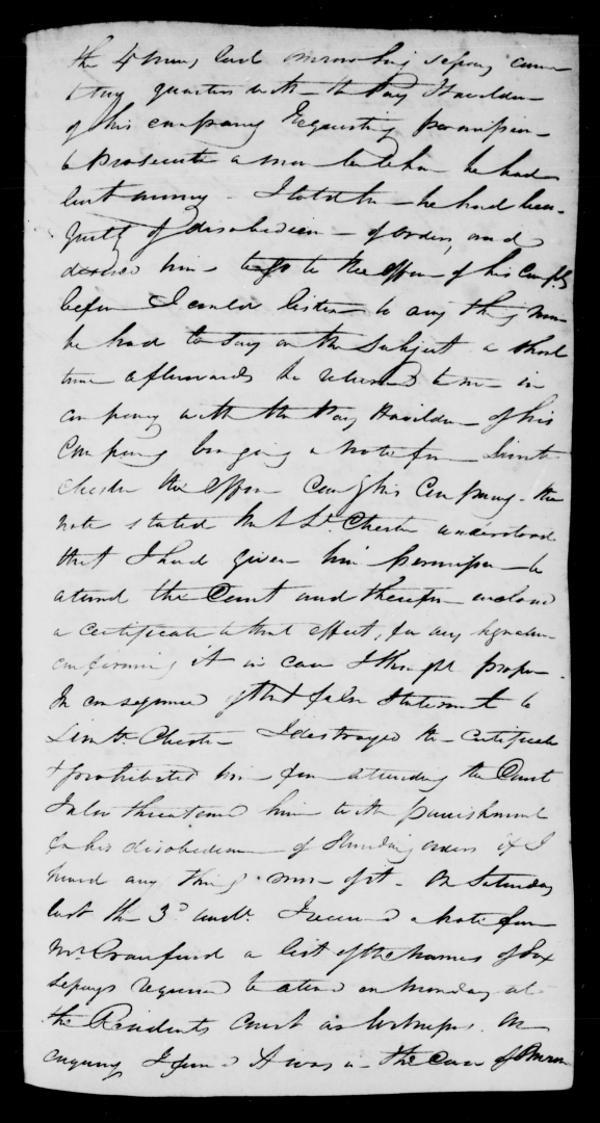 the 4 sepoy came
to my quarters with the Pay Havildar
of his company Requesting permission
to Prosecute a man to whom he had
lent money - I told him he had been
guilty of disobedience of orders, and
desired him to go to the officer of his Compy
before I could listen to any thing more
he had to say on the subject a short
time afterwards he returned to me in
company with the Pay Havildar of his
Company bringing a note from Lieut
Chester the officer Comg his Company. the
note stated that Lt. Chester understood
that I had given him permission to
attend the Court and therefore enclosed
a certificate to that effect, for my signature
confirming it in case I thought proper.
In consequence of that false statement to
Lieut. Chester I destroyed the certificate
& prohibited him from attending the Court
I also threatened him with punishment
for his disobedience of standing orders if I
heard any thing more of it. On Saturday
last the 3d I received a note from
Mr Craufurd a list of the names of Six
sepoys required to attend on Monday at
the Residents Court as witnesses. On
enquiry I found it was in the case of